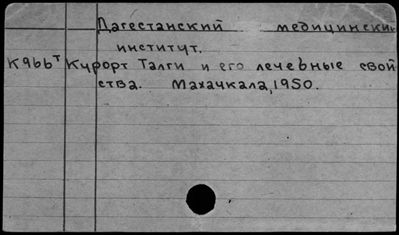 Дагестанский медицински
институт.
К966т Курорт Талги и его лечебные свой
ства. Махачкала, 1950.